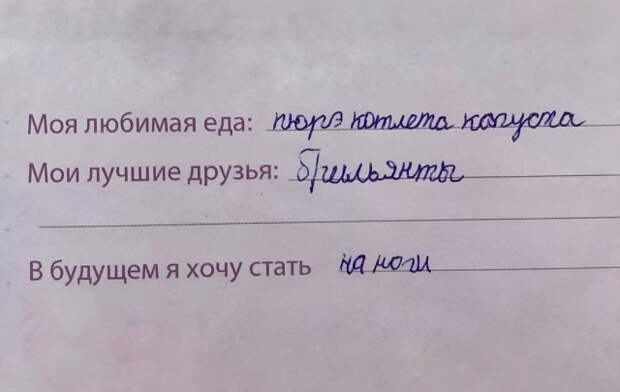 Моя любимая еда: пюрэ котлета капуста
Мои лучшие друзья: брильянты
В будущем я хочу стать на ноги